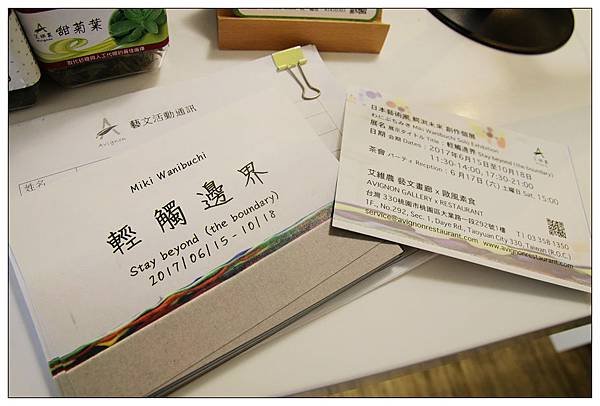 艾維農
Avignon
甜菊葉
取代砂糖與人工代糖的最佳選擇
Avignon
藝文活動通訊
姓名
Miki Wanibuchi
輕觸邊界
Stay beyond (the boundary)
2017/06/15-10/18
日本藝術展 鰐渕未来 創作個展
わにぶちみき Miki Wanibuchi Solo Exhibition
展名 展示タイトル Title：輕觸邊界 Stay beyond (the boundary)
日期 会期 Dates：2017年6月15日至10月18日
11:30-14:00, 17:30-21:00
茶會 パーティ Reception：6月17日 (六) 土曜日 Sat, 15:00
艾維農
艾維農 藝文畫廊 x 歐風素食
AVIGNON GALLERY x RESTAURANT
台灣 330桃園市桃園區大業路一段292號1樓
1F., No.292, Sec. 1, Daye Rd., Taoyuan City 330, Taiwan (R.O.C.)
T | 03 358 1350
service@avignonrestaurant.com www.avignonrestaurant.com